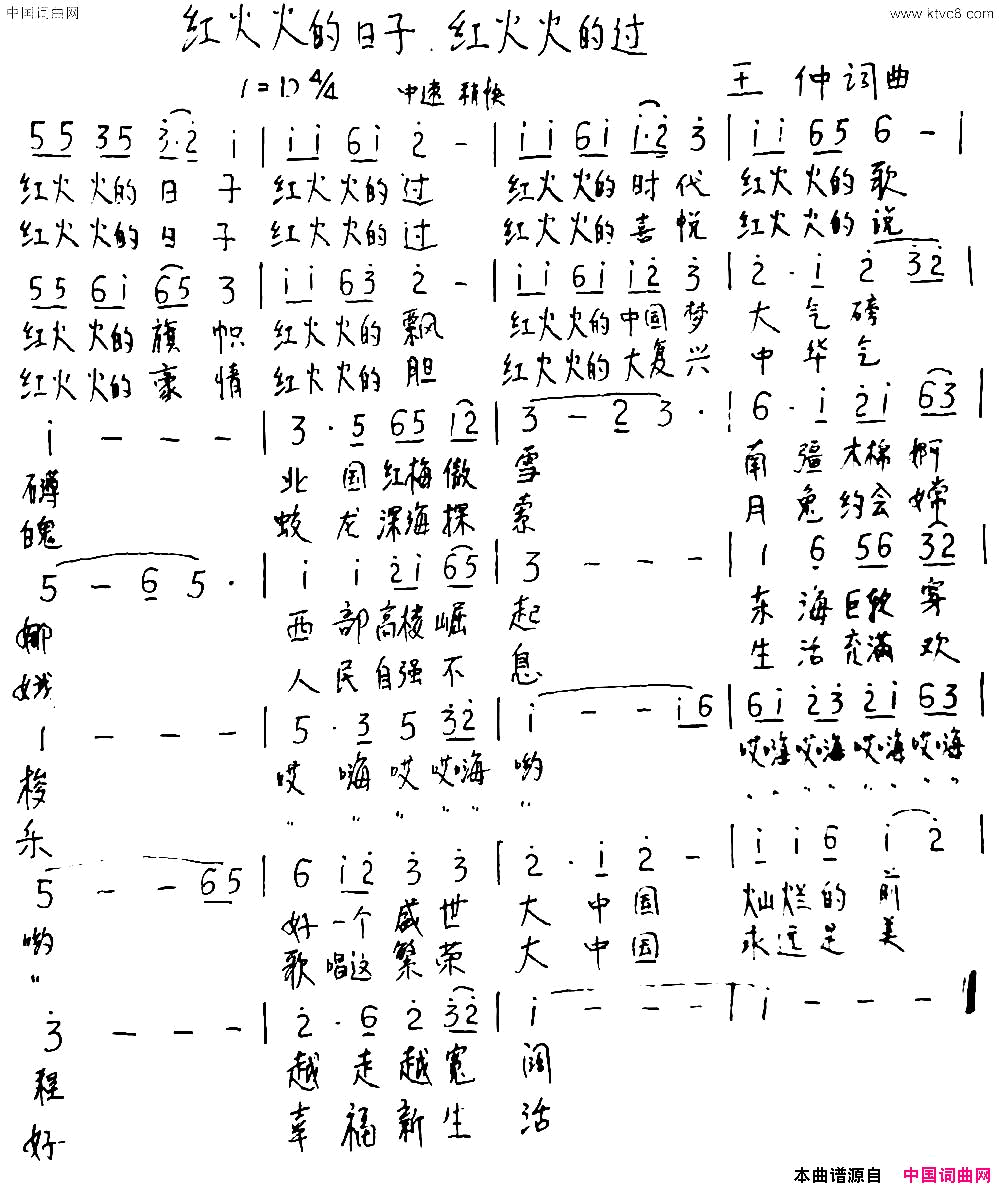 中国词曲网 www.ktvc8.com
红火火的日子 红火火的过
1=D 4/4 中速 稍快 王 仲 词 曲
5 5 3 5 3·2 i | i i 6 i 2 - | i i 6 i i·2 3 | i i 6 5 6 - |
红火火的日子 红火火的过 红火火的时代 红火火的歌
红火火的日子 红火火的过 红火火的喜悦 红火火的说
5 5 6 i 6 5 3 | i i 6 3 2 - | i i 6 i i 2 3 | 2 · i 2 3 2 |
红火火的旗帜 红火火的飘 红火火的中国梦 大气磅
红火火的豪情 红火火的胆 红火火的大复兴 中华气
i - - - | 3 · 5 6 5 i 2 | 3 - 2 3 · | 6 · i 2 i 6 3 |
礴 北国红梅傲 雪 南疆木棉婀
魄 蛟龙深海探 索 月兔约会嫦
5 - 6 5 · | i i 2 i 6 5 | 3 - - - | 1 6 5 6 3 2 |
娜 西部高楼崛 起 东海巨龙穿
娥 人民自强不 息 生活充满欢
1 - - - | 5 · 3 5 3 2 | i - - i 6 | 6 i 2 3 2 i 6 3 |
梭 哎嗨哎哎嗨 哟 哎嗨哎嗨哎嗨哎嗨
乐 〃 〃 〃 〃 〃 〃
5 - - 6 5 | 6 i 2 3 3 | 2 · i 2 - | i i 6 i 2 |
哟 好一个盛世 大中国 灿烂的前
〃 歌唱这繁荣 大中国 永远是美
3 - - - | 2 · 6 2 3 2 | i - - - | i - - - ‖
程 越走越宽 阔
好 幸福新生 活
本曲谱源自 中国词曲网